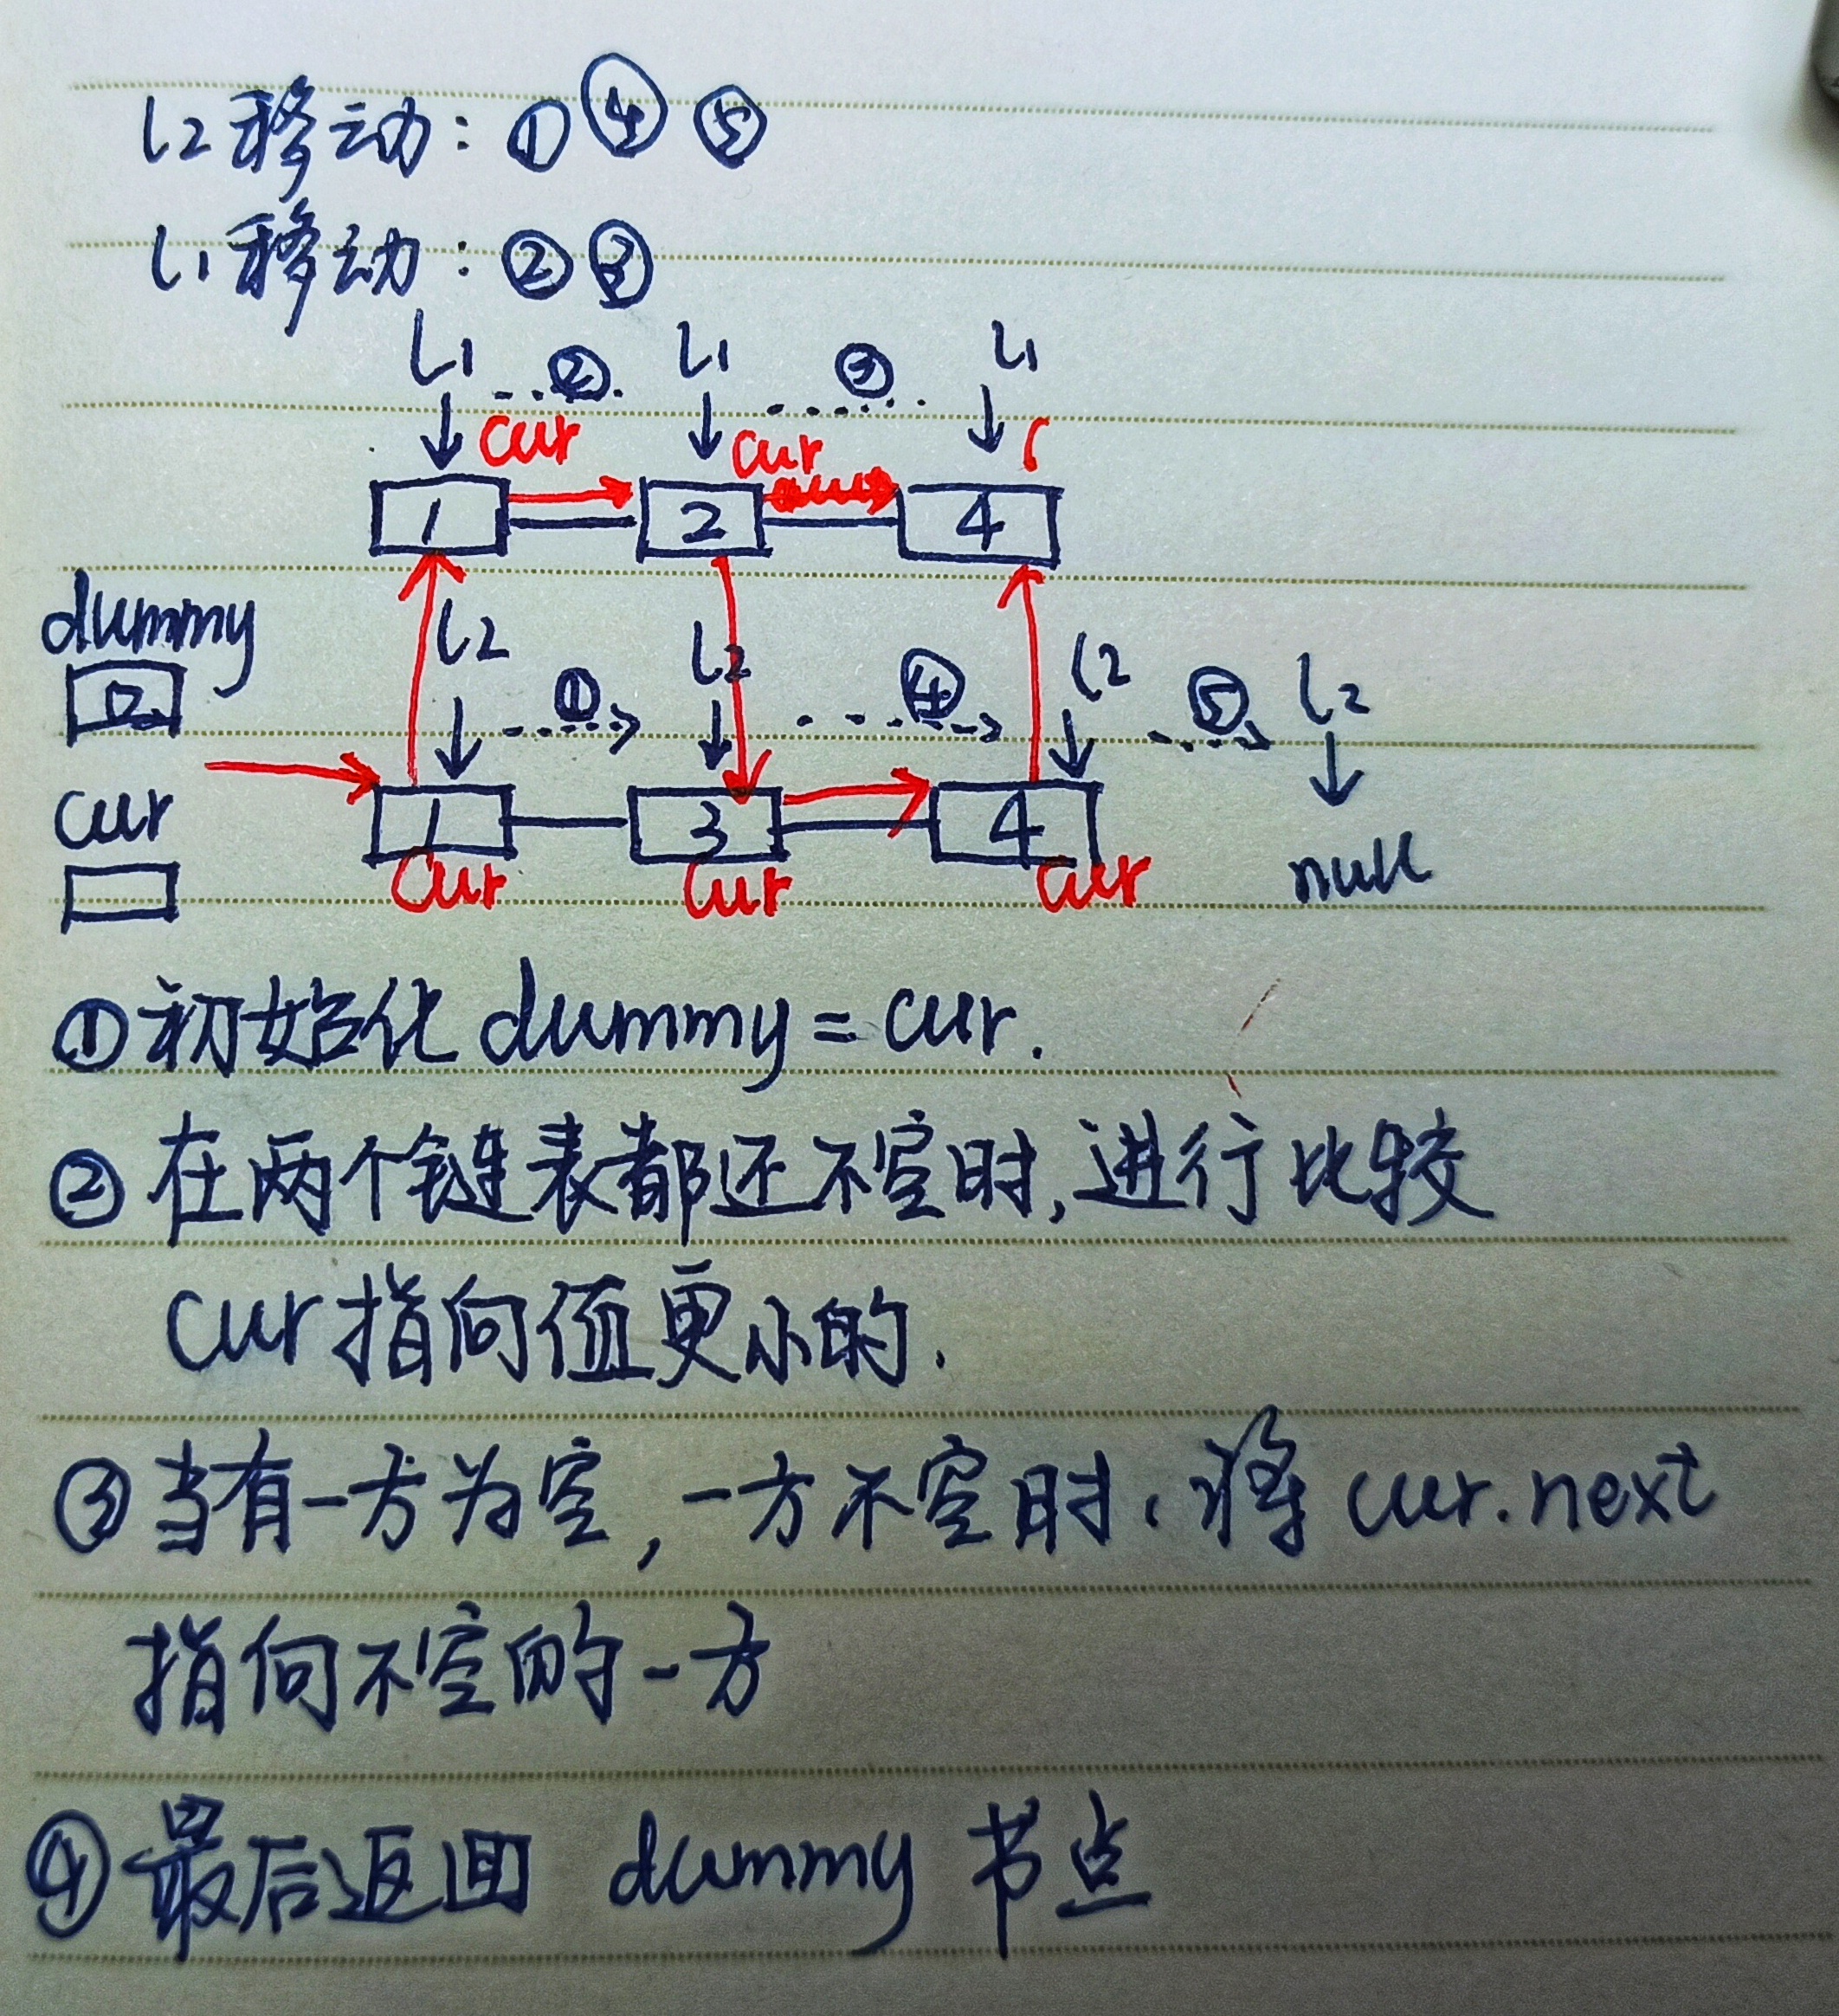 l2移动：①④⑤
l1移动：②③
l1 ② l1 ③ l1
cur cur
1 2 4
dummy
l2 l2 l2 l2
① ④ ⑤
0
1 3 4
cur
cur cur cur
null
①初始化 dummy = cur.
②在两个链表都还不空时，进行比较
cur指向值更小的.
③当有一方为空，一方不空时，将 cur.next
指向不空的一方
④最后返回 dummy 节点